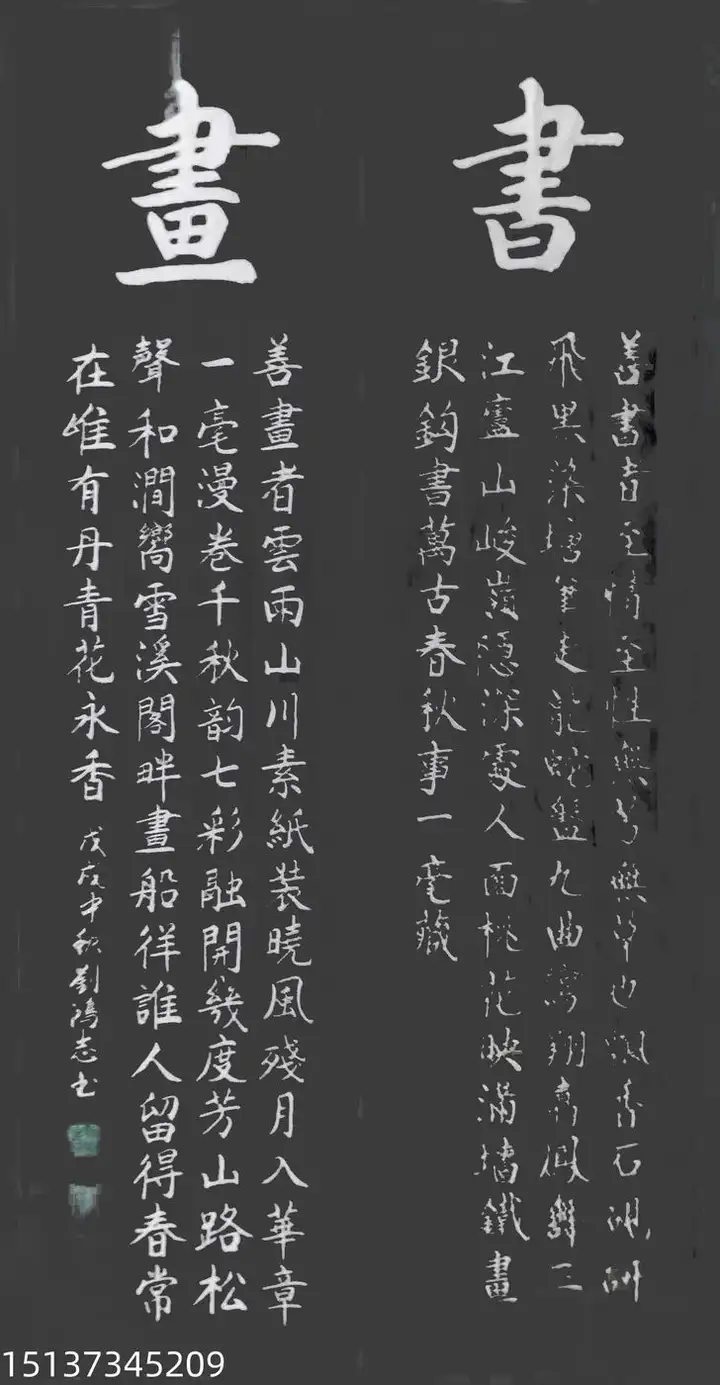 書
善書者至情至性無 無草也 青石
飛 染 筆走龍蛇盤九曲 翔 鳳舞三
江廬山峻嶺隱深處人面桃花映滿墻鐵畫
銀鈎書萬古春秋事一毫藏
畫
善畫者雲雨山川素紙裝曉風殘月入華章
一毫漫卷千秋韵七彩融開幾度芳山路松
聲和澗嚮雪溪閣畔畫船徉誰人留得春常
在唯有丹青花永香
戊戌中秋劉鴻志书
15137345209